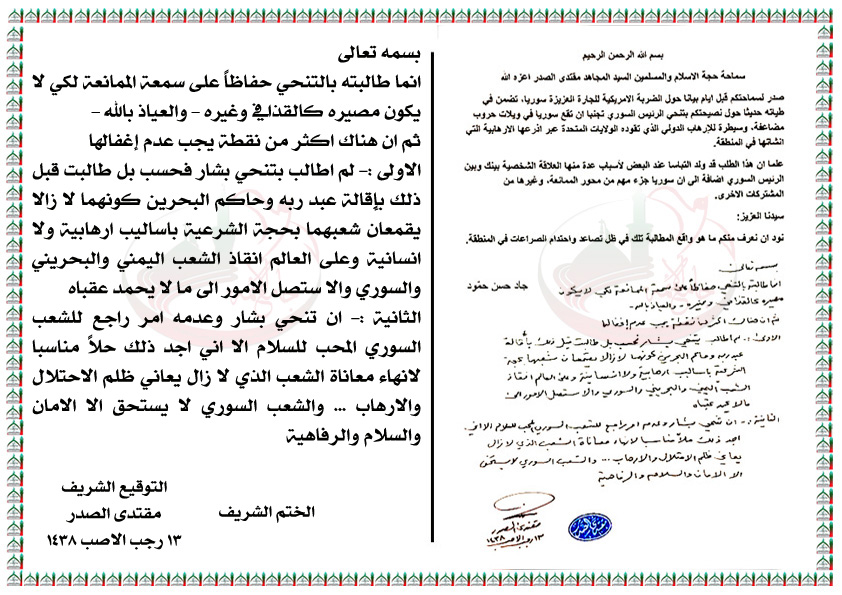 بسم الله الرحمن الرحيم
سماحة حجة الاسلام والمسلمين السيد المجاهد مقتدى الصدر اعزه الله
صدر لسماحتكم قبل ايام بيانا حول الضربة الامريكية للجارة العزيزة سوريا، تضمن في
طياته حديثا حول نصيحتكم بتنحي الرئيس السوري تجنبا ان تقع سوريا في ويلات حروب
مضاعفة، وسيطرة للإرهاب الدولي الذي تقوده الولايات المتحدة عبر اذرعها الارهابية التي
انشاتها في المنطقة.
علما ان هذا الطلب قد ولد التباسا عند البعض لأسباب عدة منها العلاقة الشخصية بينك وبين
الرئيس السوري اضافة الى ان سوريا جزء مهم من محور الممانعة، وغيرها من
المشتركات الاخرى.
سيدنا العزيز:
نود ان نعرف منكم ما هو واقع المطالبة تلك في ظل تصاعد واحتدام الصراعات في المنطقة.
جاد حسن حمود
بسمه تعالى
انما طالبته بالتنحي حفاظاً على سمعة الممانعة لكي لا يكون
مصيره كالقذافي وغيره - والعياذ بالله -
ثم ان هناك اكثر من نقطة يجب عدم إغفالها
الاولى :- لم اطالب بتنحي بشار فحسب بل طالبت قبل ذلك بإقالة
عبد ربه وحاكم البحرين كونهما لا زالا يقمعان شعبهما بحجة
الشرعية باساليب ارهابية ولا انسانية وعلى العالم انقاذ
الشعب اليمني والبحريني والسوري والا ستصل الامور الى
ما لا يحمد عقباه
الثانية :- ان تنحي بشار وعدمه امر راجع للشعب السوري المحب للسلام الا اني
اجد ذلك حلاً مناسبا لانهاء معاناة الشعب الذي لا زال
يعاني ظلم الاحتلال والارهاب ... والشعب السوري لا يستحق
الا الامان والسلام والرفاهية
مقتدى الصدر
١٣ رجب الاصب ١٤٣٨
بسمه تعالى
انما طالبته بالتنحي حفاظاً على سمعة الممانعة لكي لا
يكون مصيره كالقذافي وغيره - والعياذ بالله -
ثم ان هناك اكثر من نقطة يجب عدم إغفالها
الاولى :- لم اطالب بتنحي بشار فحسب بل طالبت قبل
ذلك بإقالة عبد ربه وحاكم البحرين كونهما لا زالا
يقمعان شعبهما بحجة الشرعية باساليب ارهابية ولا
انسانية وعلى العالم انقاذ الشعب اليمني والبحريني
والسوري والا ستصل الامور الى ما لا يحمد عقباه
الثانية :- ان تنحي بشار وعدمه امر راجع للشعب
السوري المحب للسلام الا اني اجد ذلك حلاً مناسبا
لانهاء معاناة الشعب الذي لا زال يعاني ظلم الاحتلال
والارهاب ... والشعب السوري لا يستحق الا الامان
والسلام والرفاهية
الختم الشريف
التوقيع الشريف
مقتدى الصدر
١٣ رجب الاصب ١٤٣٨